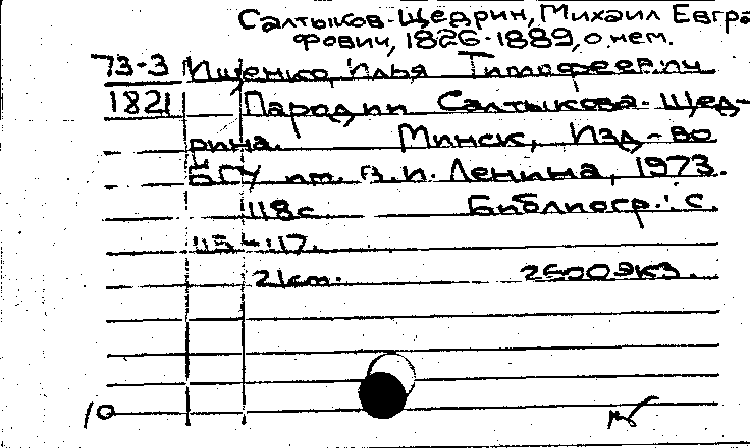 Салтыков-Щедрин, Михаил Евгра
фович, 1826-1889, о нем.
73-3 Ищенко, Илья Тимофеевич
1821 Пародии Салтыкова-Щед-
рина. Минск, Изд-во
БГУ им. В.И. Ленина, 1973.
118с. Библиогр.: с.
115-117.
21см. 2600экз.
10